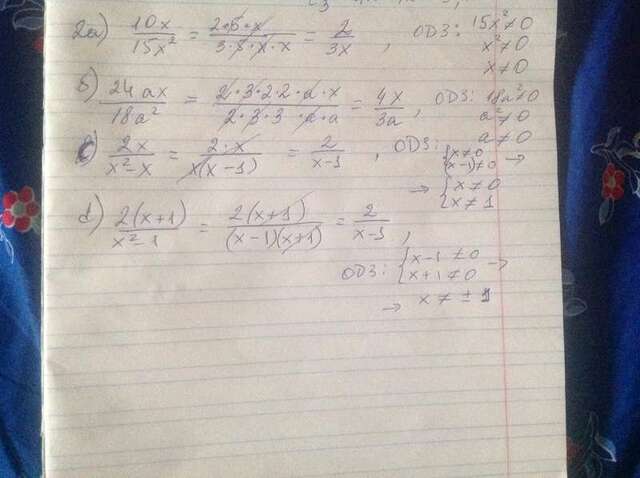 2a) 10x/15x² = 2·5·x/3·5·x·x = 2/3x , ОДЗ: 15x²≠0
x²≠0
x≠0
б) 24ax/18a² = 2·3·2·2·a·x/2·3·3·a·a = 4x/3a , ОДЗ: 18a²≠0
a²≠0
a≠0
в) 2x/x²-x = 2·x/x(x-1) = 2/x-1 , ОДЗ: {x≠0 x-1≠0 →
→ {x≠0 x≠1
d) 2(x+1)/x²-1 = 2(x+1)/(x-1)(x+1) = 2/x-1 ,
ОДЗ: {x-1≠0 x+1≠0 →
→ x≠±1